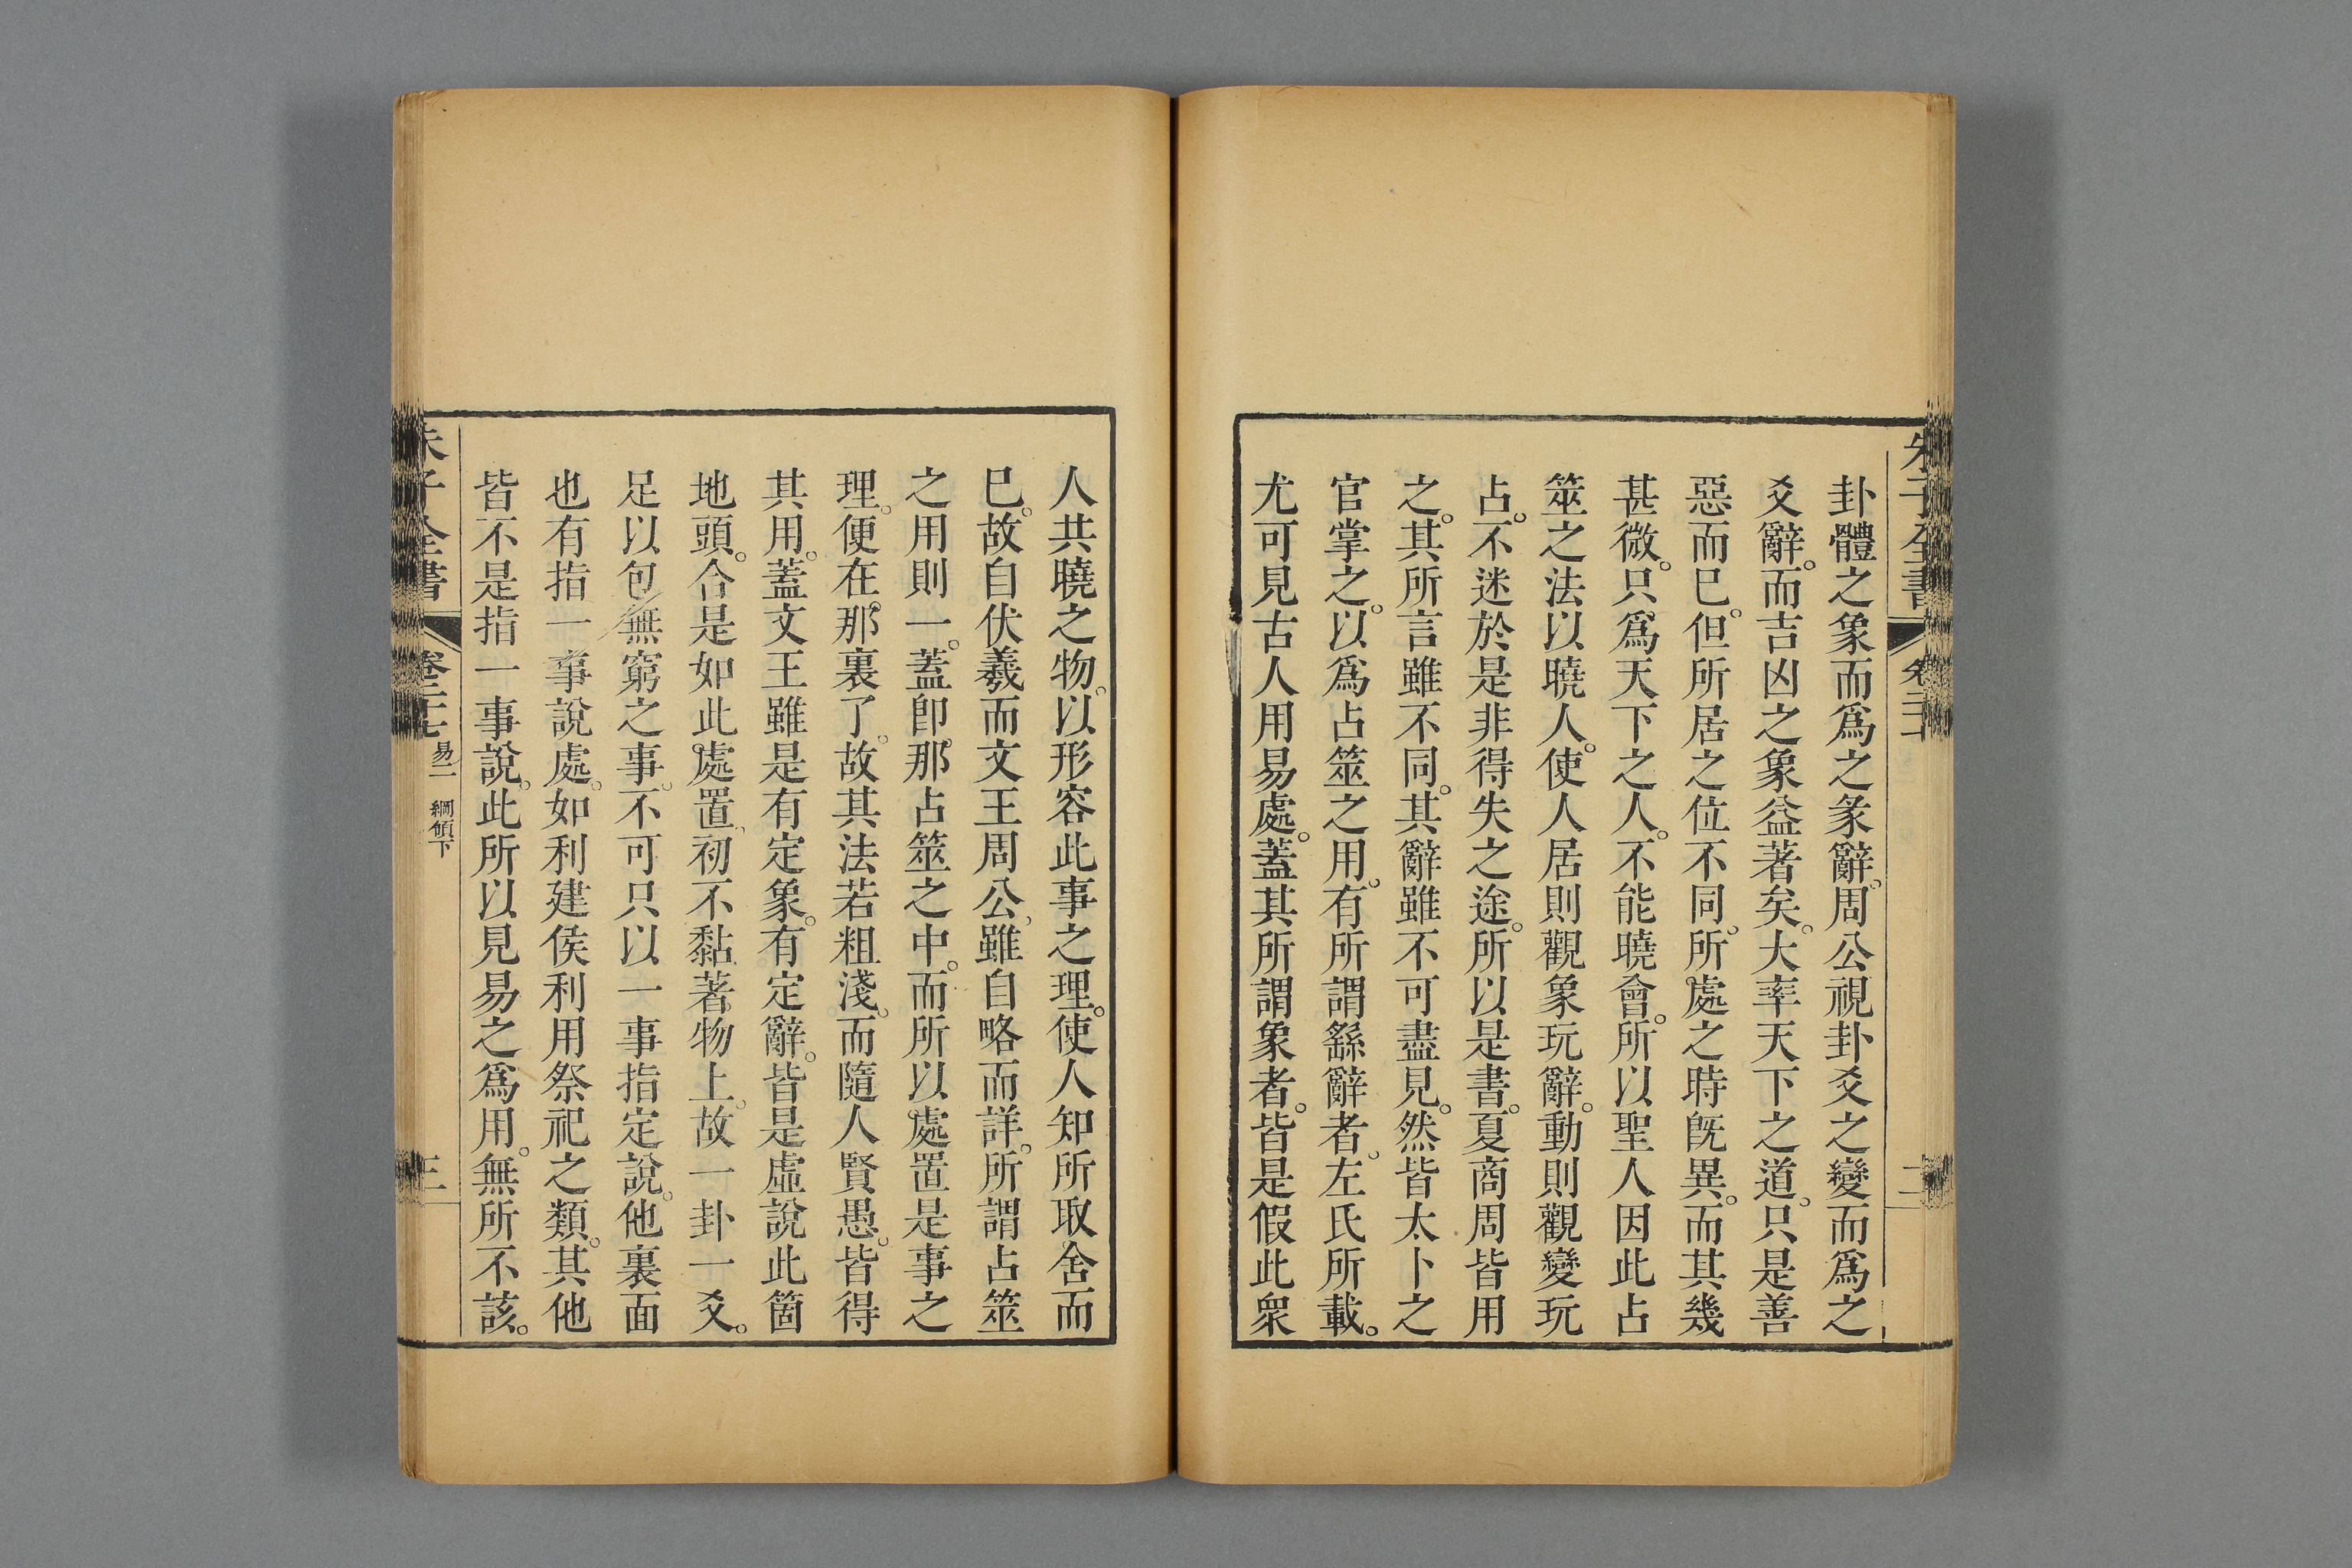 卦體之象而爲之彖辭。周公視卦爻之變而爲之
爻辭。而吉凶之象益著矣。大率天下之道。只是善
惡而已。但所居之位不同。所處之時旣異。而其幾
甚微。只爲天下之人。不能曉會。所以聖人因此占
筮之法以曉人。使人居則觀象玩辭。動則觀變玩
占。不迷於是非得失之途。所以是書。夏商周皆用
之。其所言雖不同。其辭雖不可盡見。然皆太卜之
官掌之。以爲占筮之用。有所謂繇辭者。左氏所載。
尤可見古人用易處。蓋其所謂象者。皆是假此衆
人共曉之物。以形容此事之理。使人知所取舍而
已。故自伏羲而文王周公。雖自略而詳。所謂占筮
之用則一。蓋卽那占筮之中。而所以處置是事之
理。便在那裏了。故其法若粗淺。而隨人賢愚。皆得
其用。蓋文王雖是有定象。有定辭。皆是虛說此箇
地頭。合是如此處置。初不黏著物上。故一卦一爻。
足以包無窮之事。不可只以一事指定說。他裏面
也有指一事說處。如利建侯利用祭祀之類。其他
皆不是指一事說。此所以見易之爲用。無所不該。
朱子全書
卷二十七
易二
綱領下
三